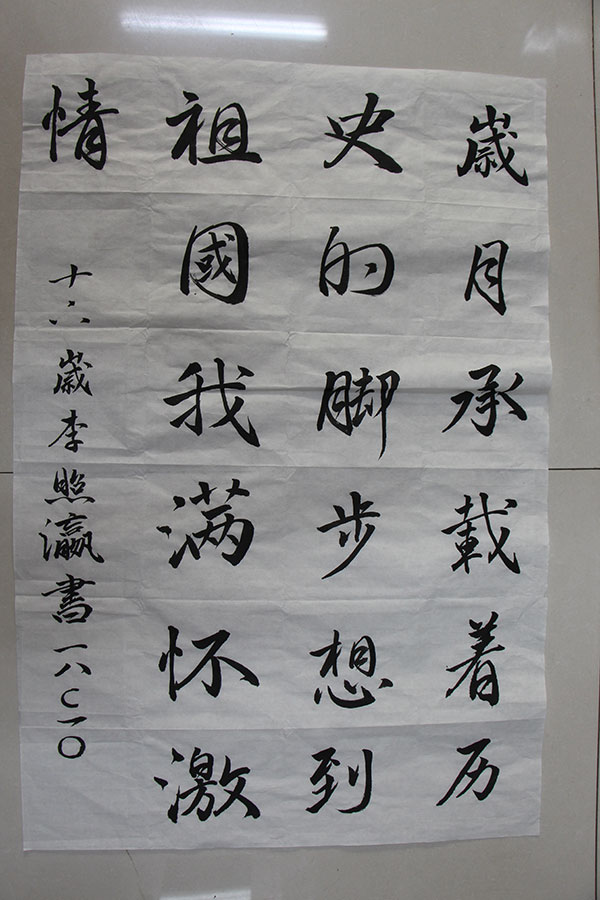 歲月承載着历
史的脚步想到
祖國我满怀激
情
十六歲李照瀛書一八C一〇